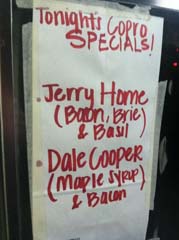 Tonight's Copro
SPECIALS!
Jerry Horne
(Bacon, Brie)
& Basil
Dale Cooper
(Maple Syrup)
& Bacon